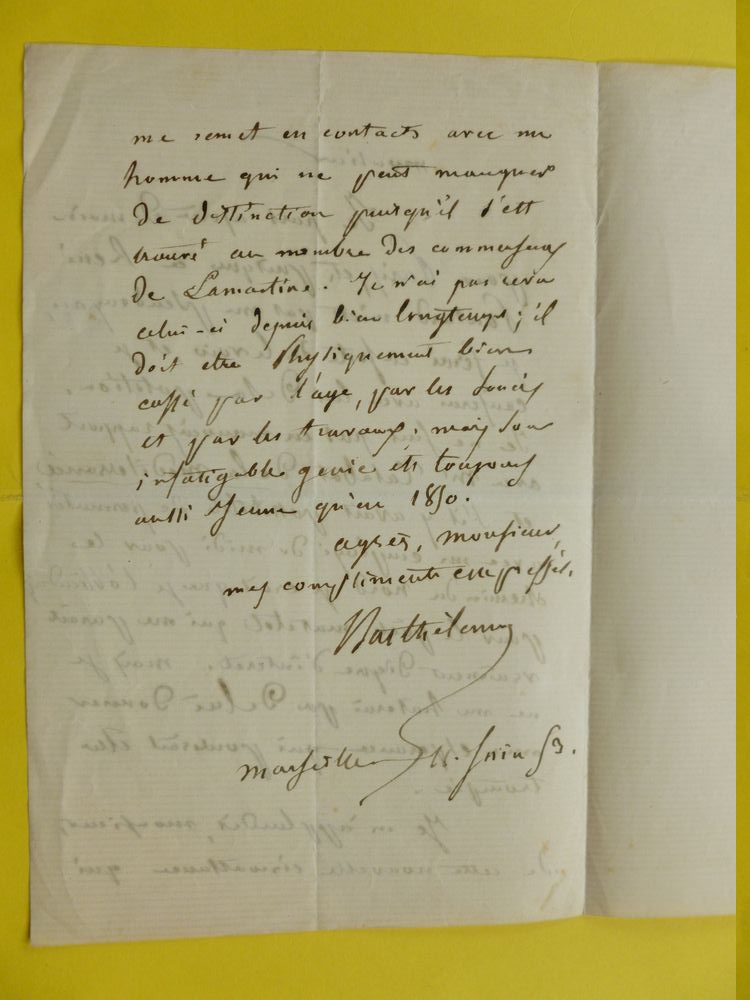 me remet en contacts avec un
homme qui ne peut manquer
de distinction puisqu'il s'est
trouvé au nombre des commensaux
de Lamartine. Je n'ai pas revu
celui-ci depuis bien longtemps; il
doit etre Physiquement bien
cassé par l'age, par les soucis
et par les travaux, mais son
infatigable genie est toujours
aussi Jeune qu'en 1830.
agréez, monsieur,
mes compliments empressés.
Barthélemy
marseille 11. Juin